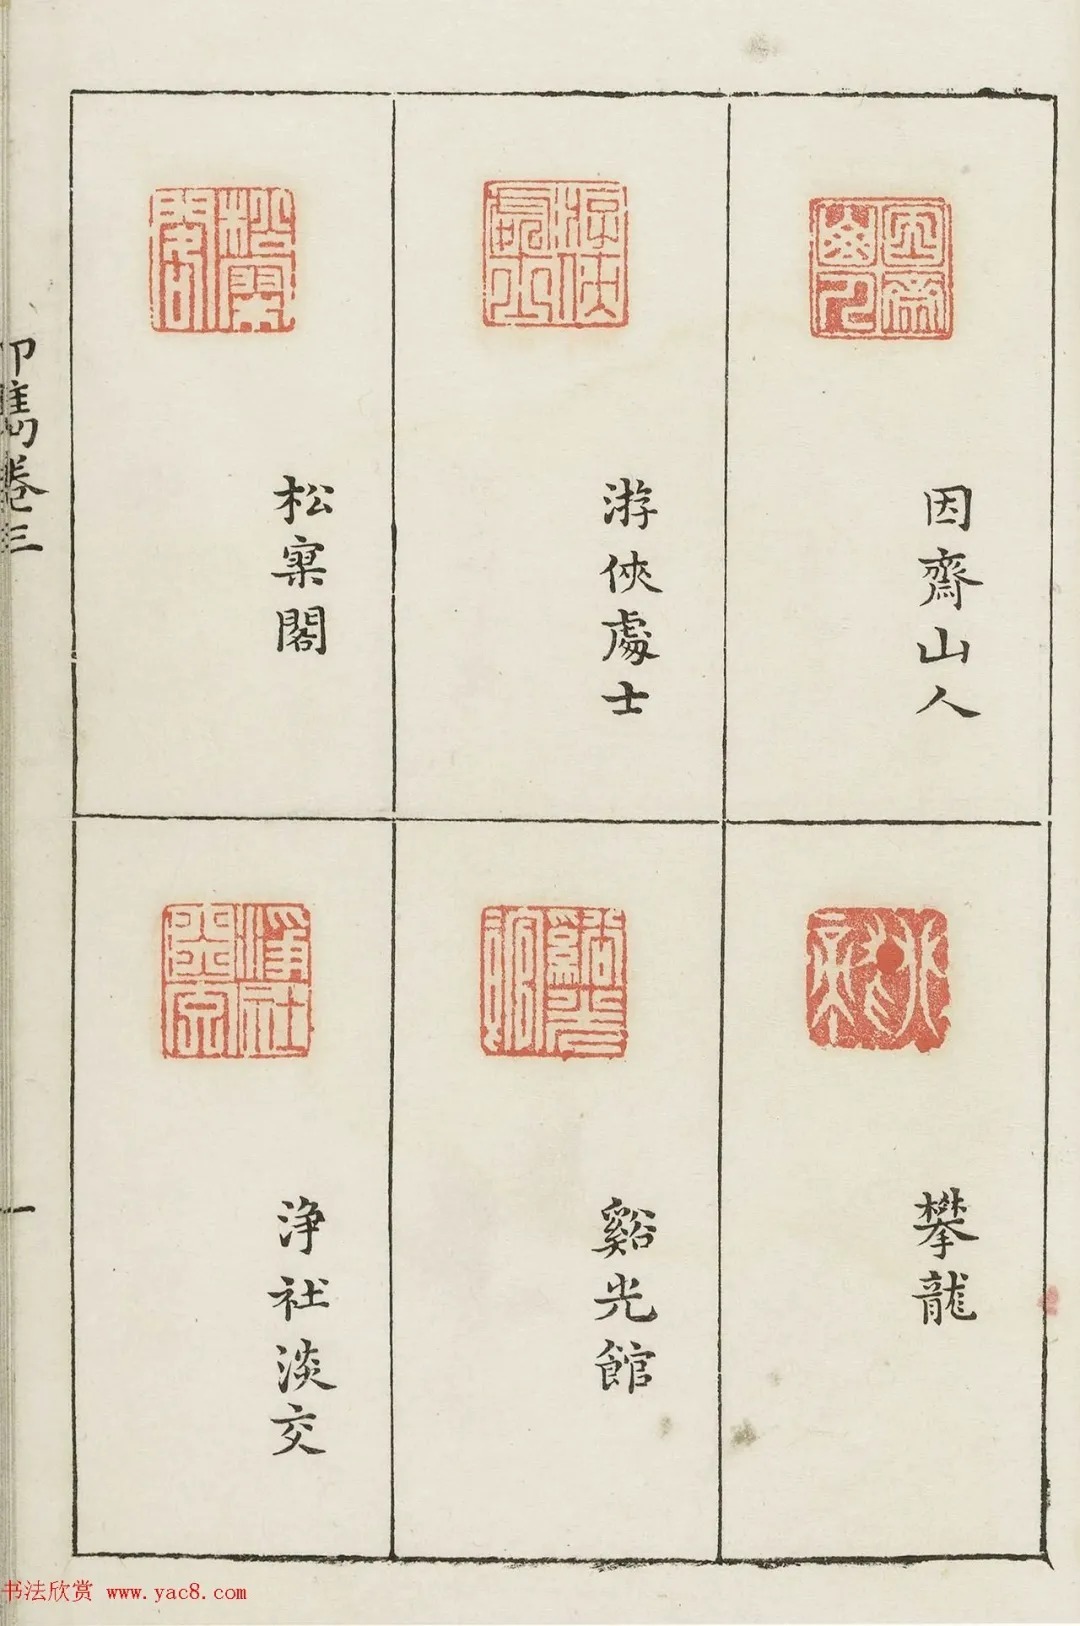 因齋山人
游俠處士
松寥閣
攀龍
谿光館
浄社淡交
印雋卷三
一
书法欣赏 www.yac8.com